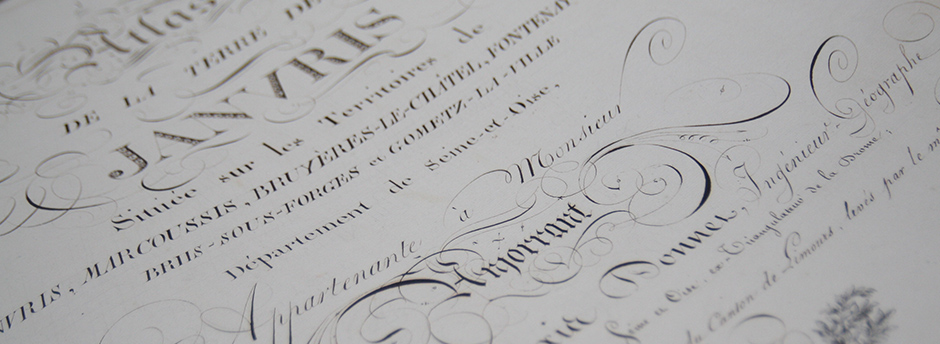 Atlas
DE LA TERRE DE
JANVRIS
Située sur les Territoires de
VRIS, MARCOUSSIS, BRUYÈRES-LE-CHÂTEL, FONTENAY
BRIIS-SOUS-FORGES et GOMETZ-LA-VILLE
Département de Seine-et-Oise,
Appartenante à Monsieur
Anjorrant
Donnet, Ingénieur Géographe
du Canton de Limours, levés par le